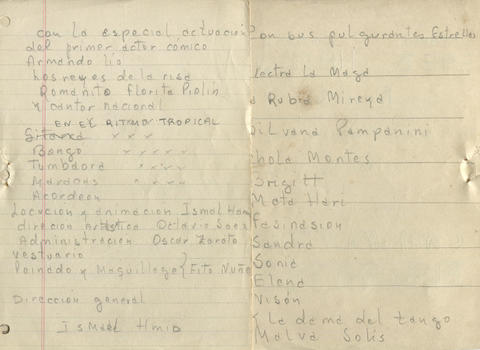 con la especial actuación
del primer actor comico
Armando Lio
los reyes de la risa
Romanito Florita Piolin
y cantor nacional
EN EL RITMO TROPICAL
Gitarra x x x
Bongo x x x x x
Tumbadora x x x x
Maracas x x x x
Acordeon
Locucion y animacion Ismal Ham
direcion artistica Octavio Saez
Administracion Oscar Zarate
vestuario
Peinado y Maquillage } Fito Nuñe
Direccion general
Ismael Hmid
Con sus pulgurantes Estrellas
lectra La Maga
a Rubia Mireya
Silvana Pampanini
hola Montes
Brigitt
Mata Hari
fasinasion
Sandra
Sonia
Elena
Vison
( La dama del tango
Malva Solis